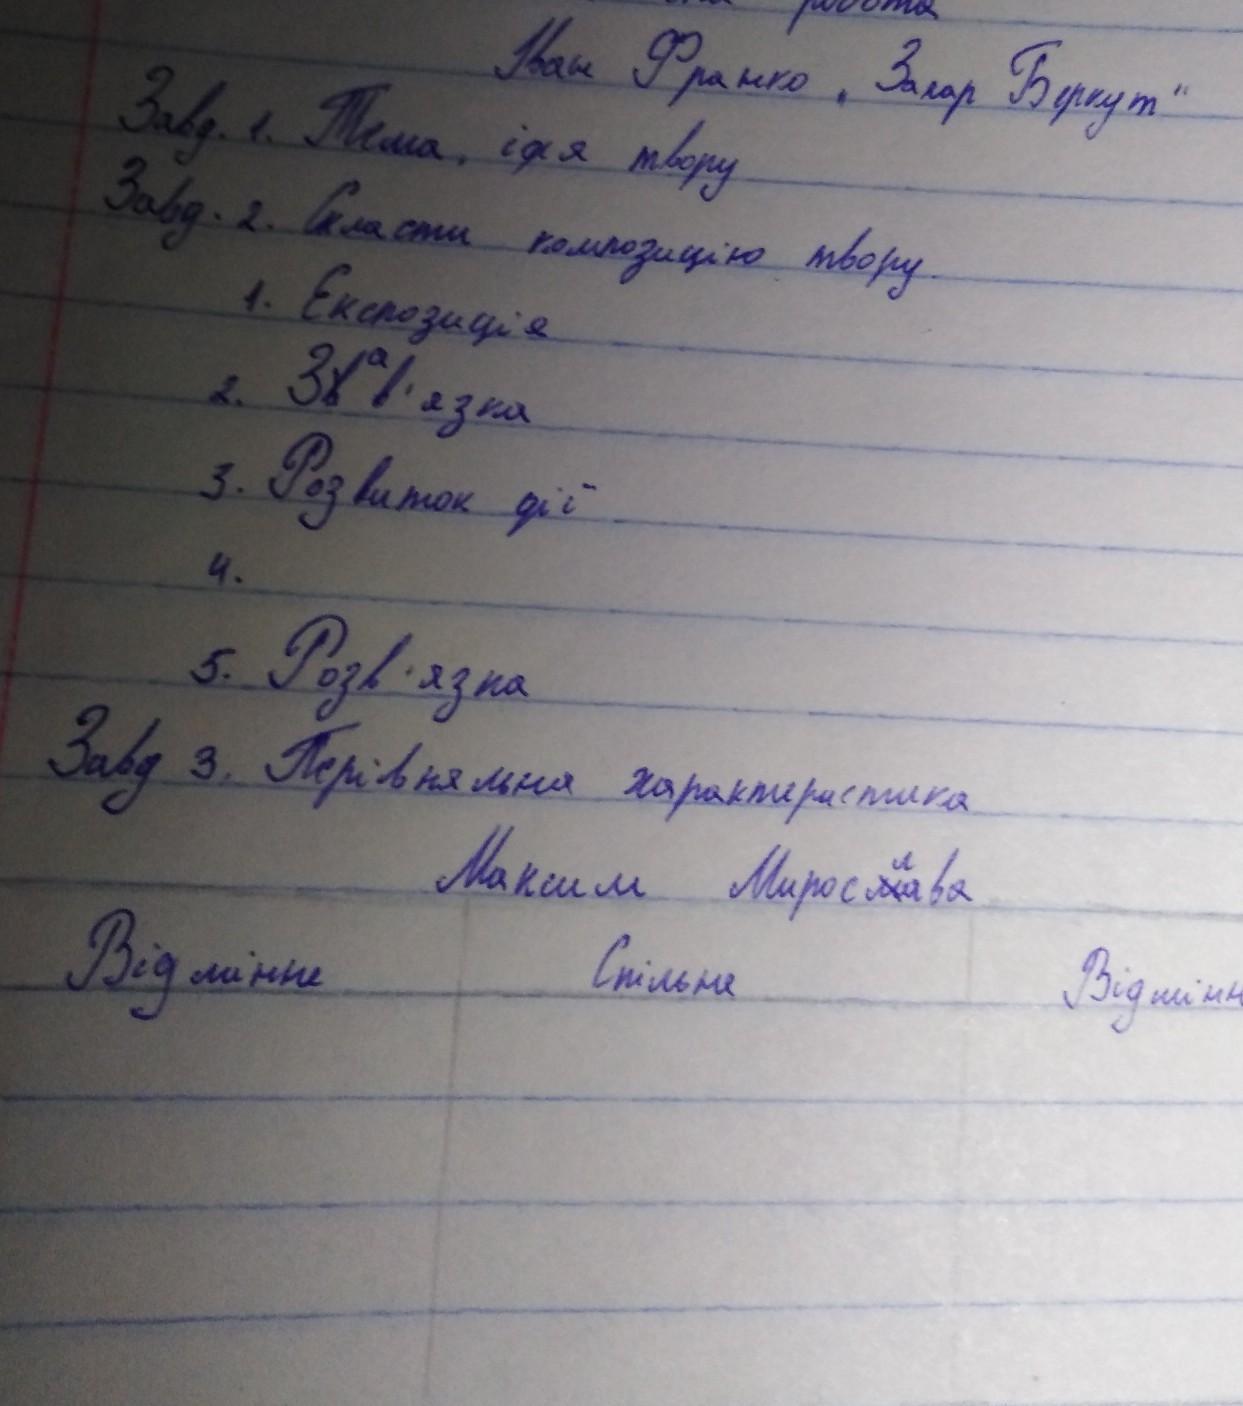 робота
Іван Франко „Захар Беркут"
Завд. 1. Тема, ідея твору
Завд. 2. Скласти композицію твору.
1. Експозиція
2. Зав'язка
3. Розвиток дії
4.
5. Розв'язка
Завд 3. Порівняльна характеристика
Максим Мирослава
Відмінне Спільне Відмінн